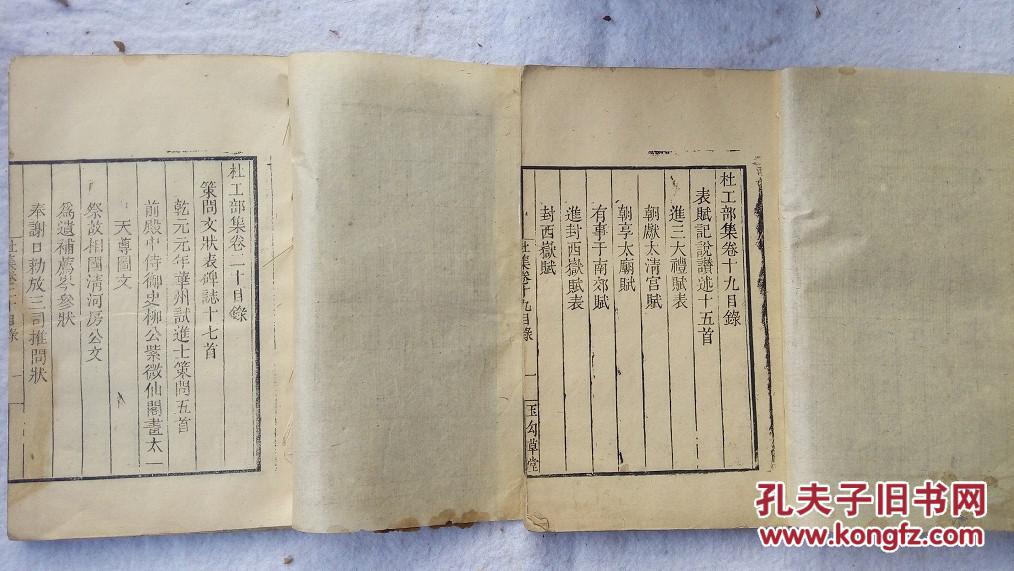 杜工部集卷十九目錄
表賦記說讚述十五首
進三大禮賦表
朝獻太清宮賦
朝享太廟賦
有事于南郊賦
進封西嶽賦表
封西嶽賦
杜集卷十九目錄 一 玉勾草堂
杜工部集卷二十目錄
策問文狀表碑誌十七首
乾元元年華州試進士策問五首
前殿中侍御史柳公紫微仙閣畫太一
天尊圖文
祭故相國清河房公文
為遺補薦岑參狀
奉謝口勅放三司推問狀
杜集卷二十目錄 一
孔夫子旧书网
www.kongfz.com